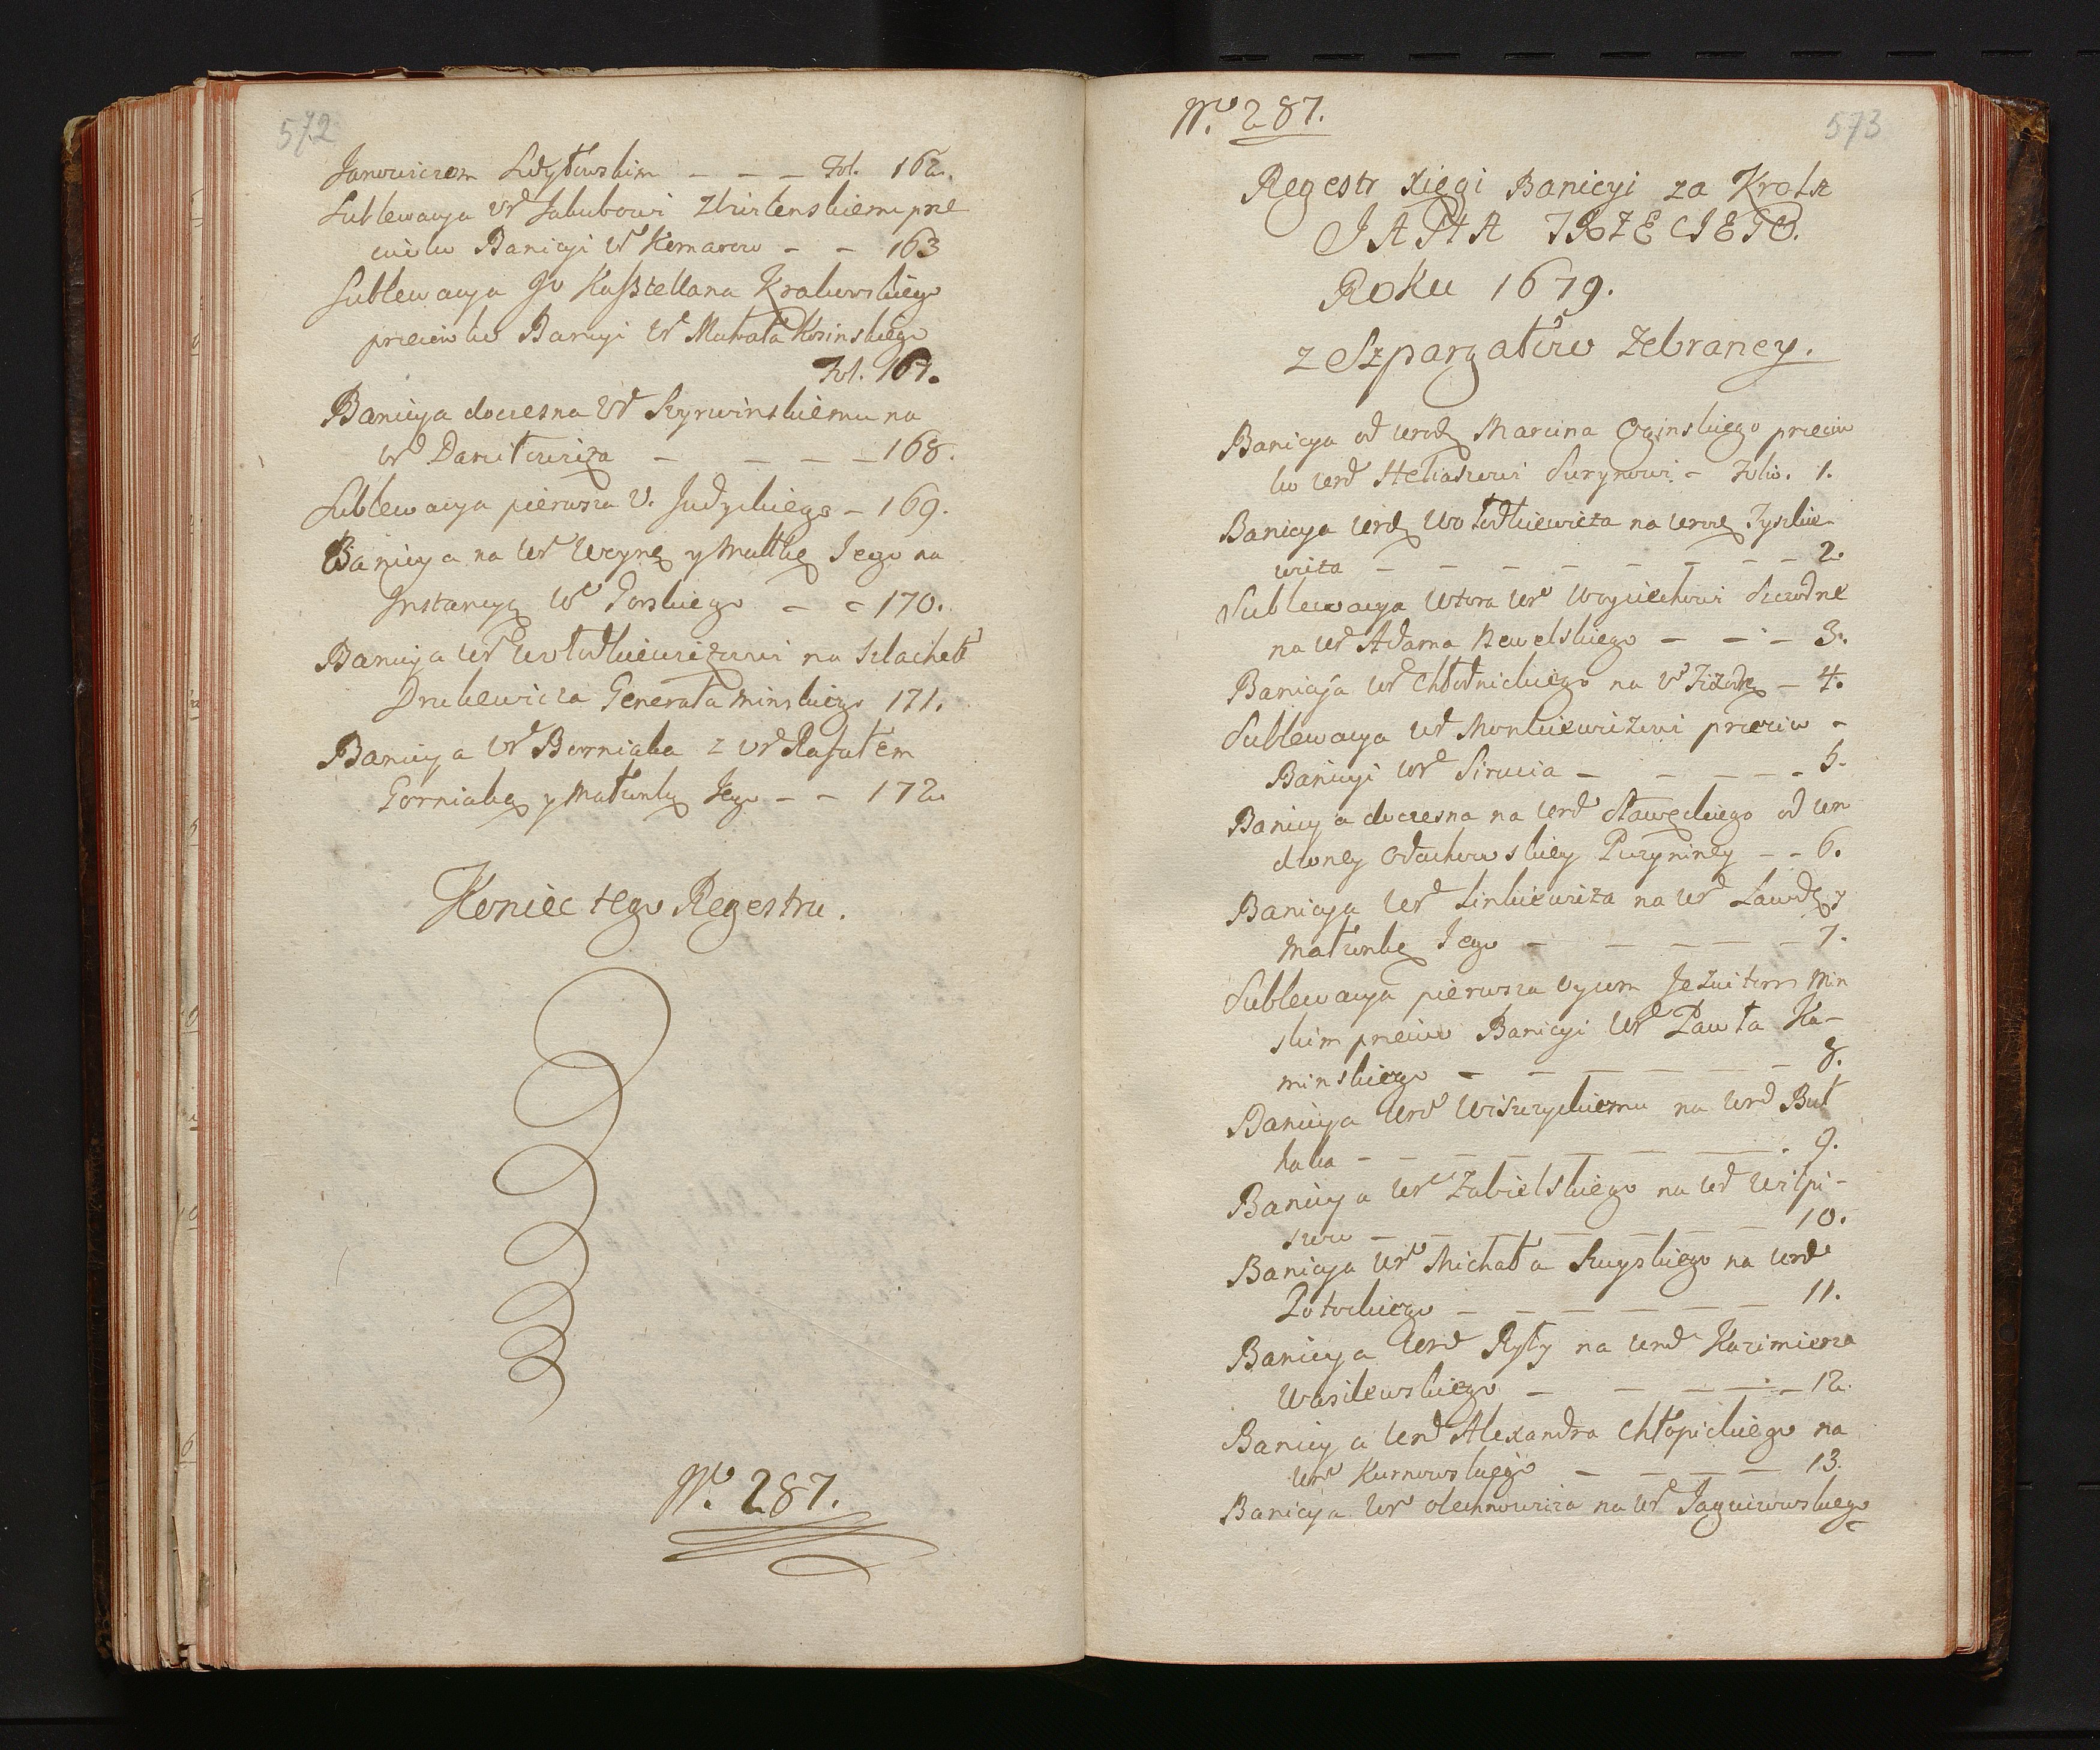 572
Janowiczom Sołytowskim - - - Fol. 162.
Sublewacya Ur Jakubowi Zbirlenskiemu prze
ciwko Banicyi Ur Komarow - - 163
Sublewacya Jo Kasztellana Krakowskiego
przeciwko Banicyi Ur Michała Kosinskiego
Fol. 167.
Banicya doczesna Ur Szyrwinskiemu na
Ur Daniłowicza - - - - 168.
Sublewacya pierwsza U. Judyckiego - 169.
Banicya na Ur Woynę y Matkę Jego na
Instancyą Ur Gorskiego - - 170.
Banicya Ur Wołodkiewiczowi na Szlachet
Drukewicza Generała Minskiego 171.
Banicya Ur Borniaka z Ur Rafałem
Gorniaką y Małżonką Jego - - 172.
Koniec tego Regestru.
No. 287.
No. 287.
573
Regestr Xięgi Banicyi za Krola
JANA TRZECIEGO.
Roku 1679.
z Szpargałów Zebraney.
Banicya od Urodz Marcina Oginskiego przeciw
ko Urd Heliaszowi Suzynowi - Folio. 1.
Banicya Urdz Wołodkiewicza na Urodz Tyszkie-
wicza - - - - - - - - 2.
Sublewacya Wtora Ur Woyciechowi Szczodre
na Ur Adama Kewelskiego - - - 3.
Banicya Ur Chłodnickiego na Ur Fizodz - 4.
Sublewacya Ur Monkiewiczowi przeciw -
Banicyi Urd Sirucia - - - - - 5.
Banicya doczesna na Urd Sławęckiego od Uro
dzoney Odachowskiey Puzyniney - - 6.
Banicya Urd Sinkiewicza na Urd Ławdę y
Małżonkę Jego - - - - - 7.
Sublewacya pierwsza Oycom Jezuitom Min
skim przeciw Banicyi Urd Pawła Ka-
minskiego - - - - - - 8.
Banicya Urd Wiszczyckiemu na Urd Buł
haka - - - - - - - 9.
Banicya Ur Zabielskiego na Ur Wilpi-
szew - - - - - - - 10.
Banicya Ur Michała Szuyskiego na Urd
Potockiego - - - - - - 11.
Banicya Urd Ryły na Urd Kazimierza
Wasilewskiego - - - - - 12.
Banicya Urd Alexandra Chłopickiego na
Urd Kurnowskiego - - - - 13.
Banicya Ur Olechnowicza na Ur Jaguiowskiego